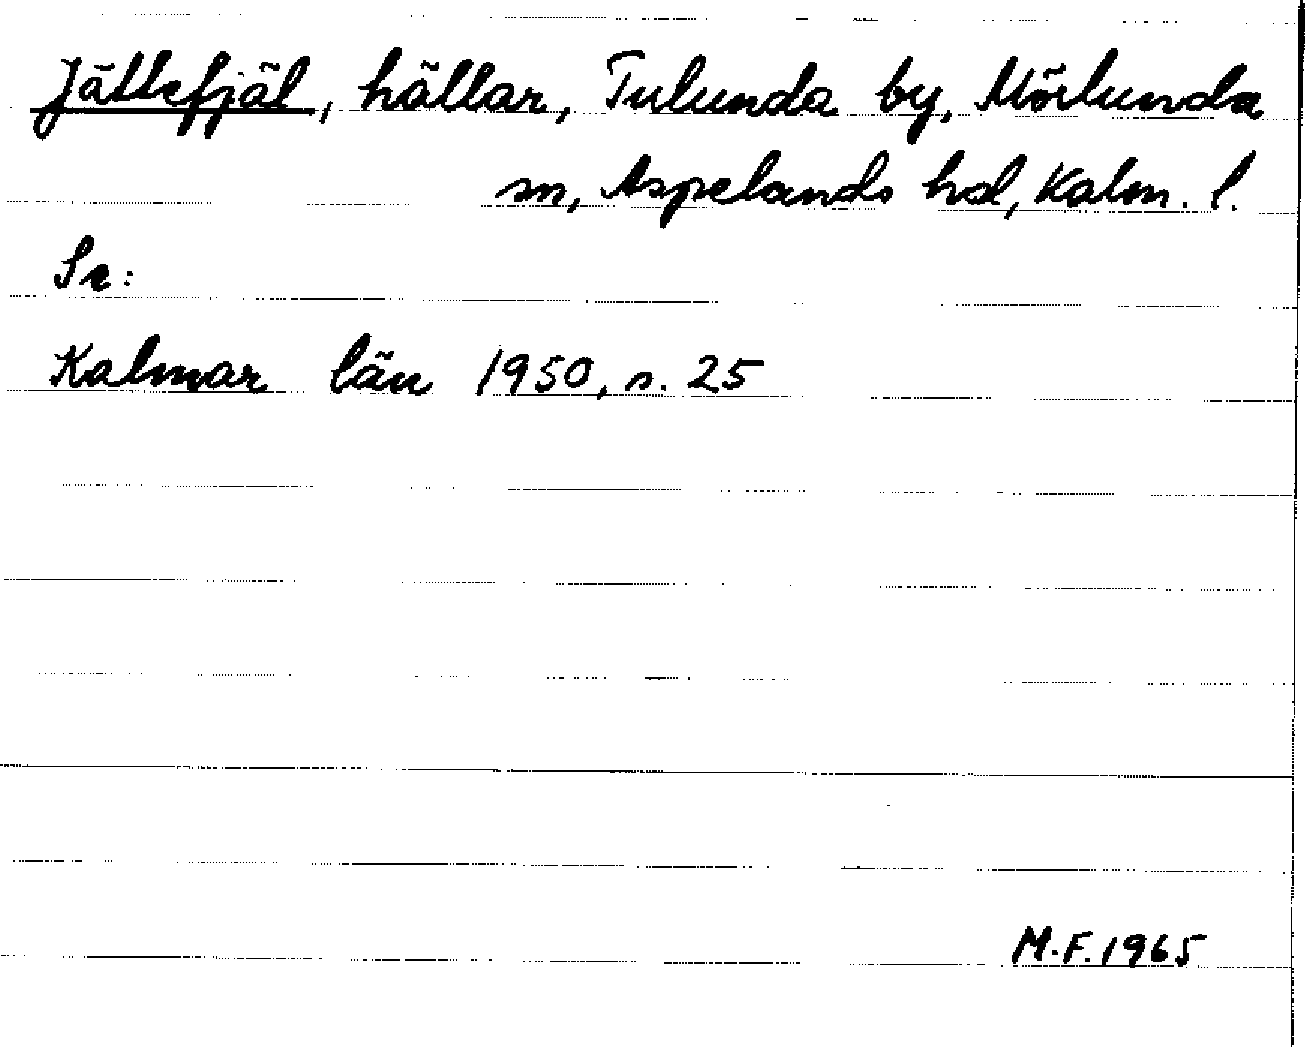 Jättefjäl, hällar, Tulunda by, Mörlunda
sn, Aspelands hd, Kalm. l.
Se:
Kalmar län 1950, s. 25
M.F. 1965